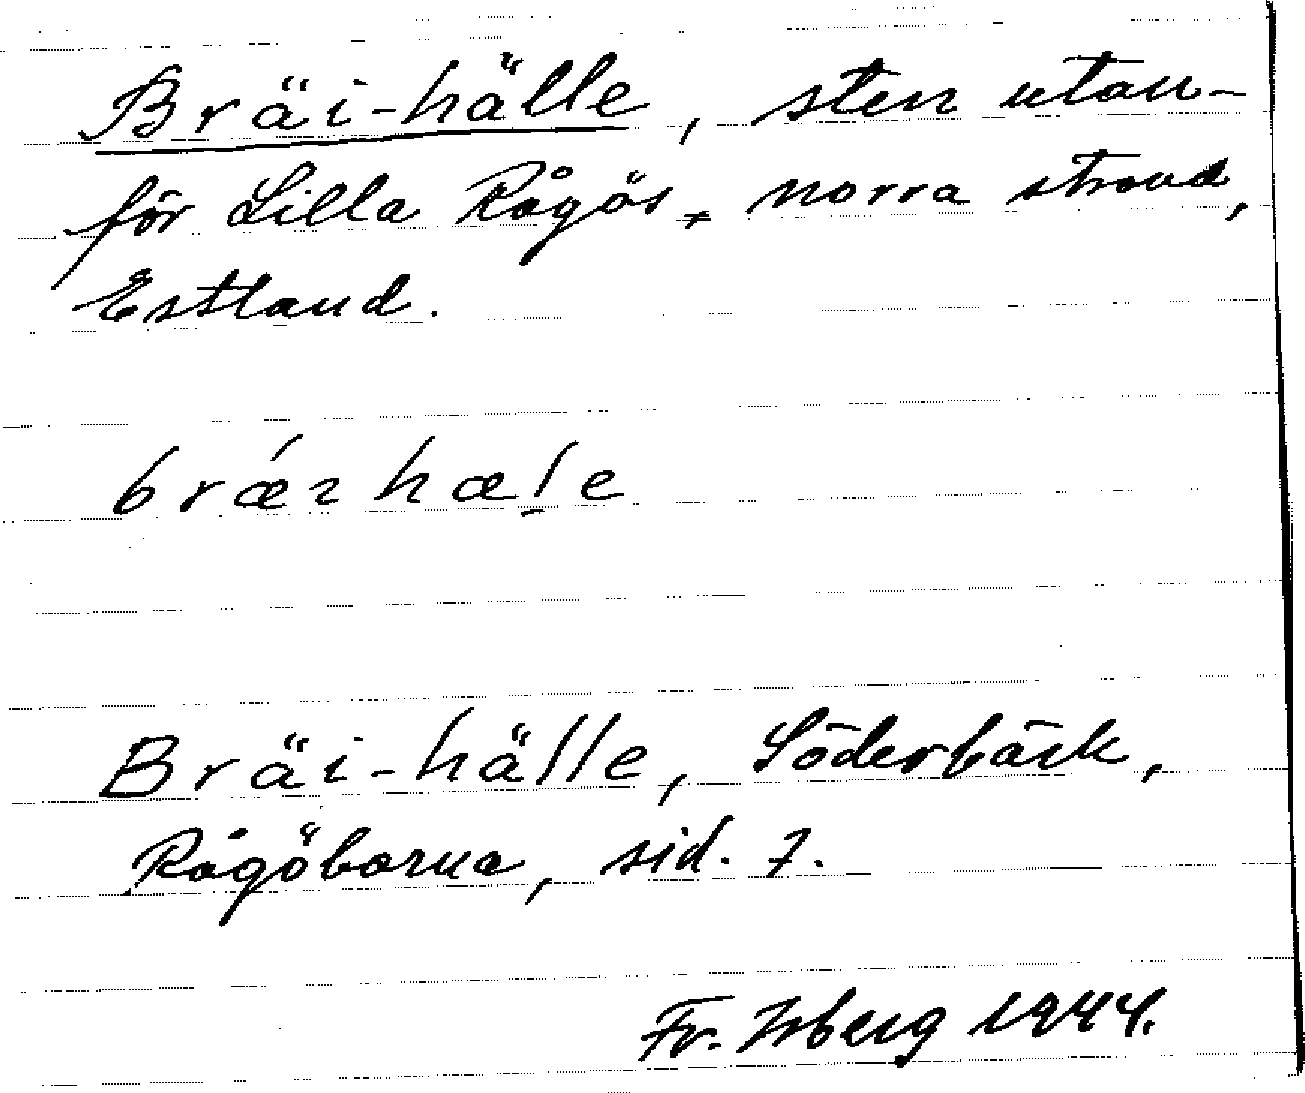 Bräi-hälle, sten utan-
för Lilla Rågös norra strand,
Estland.
brǽɪhæl̠e
Bräi-hälle, Söderbäck,
Rågöborna, sid. 7.
Fr. Isberg 1944.